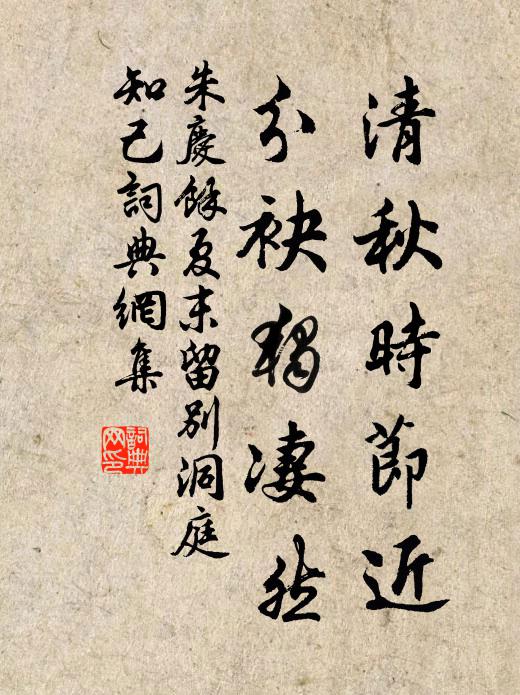 清秋時節近
分袂獨凄然
朱慶餘夏末留別洞庭
知己詞典網集
詞典
网印